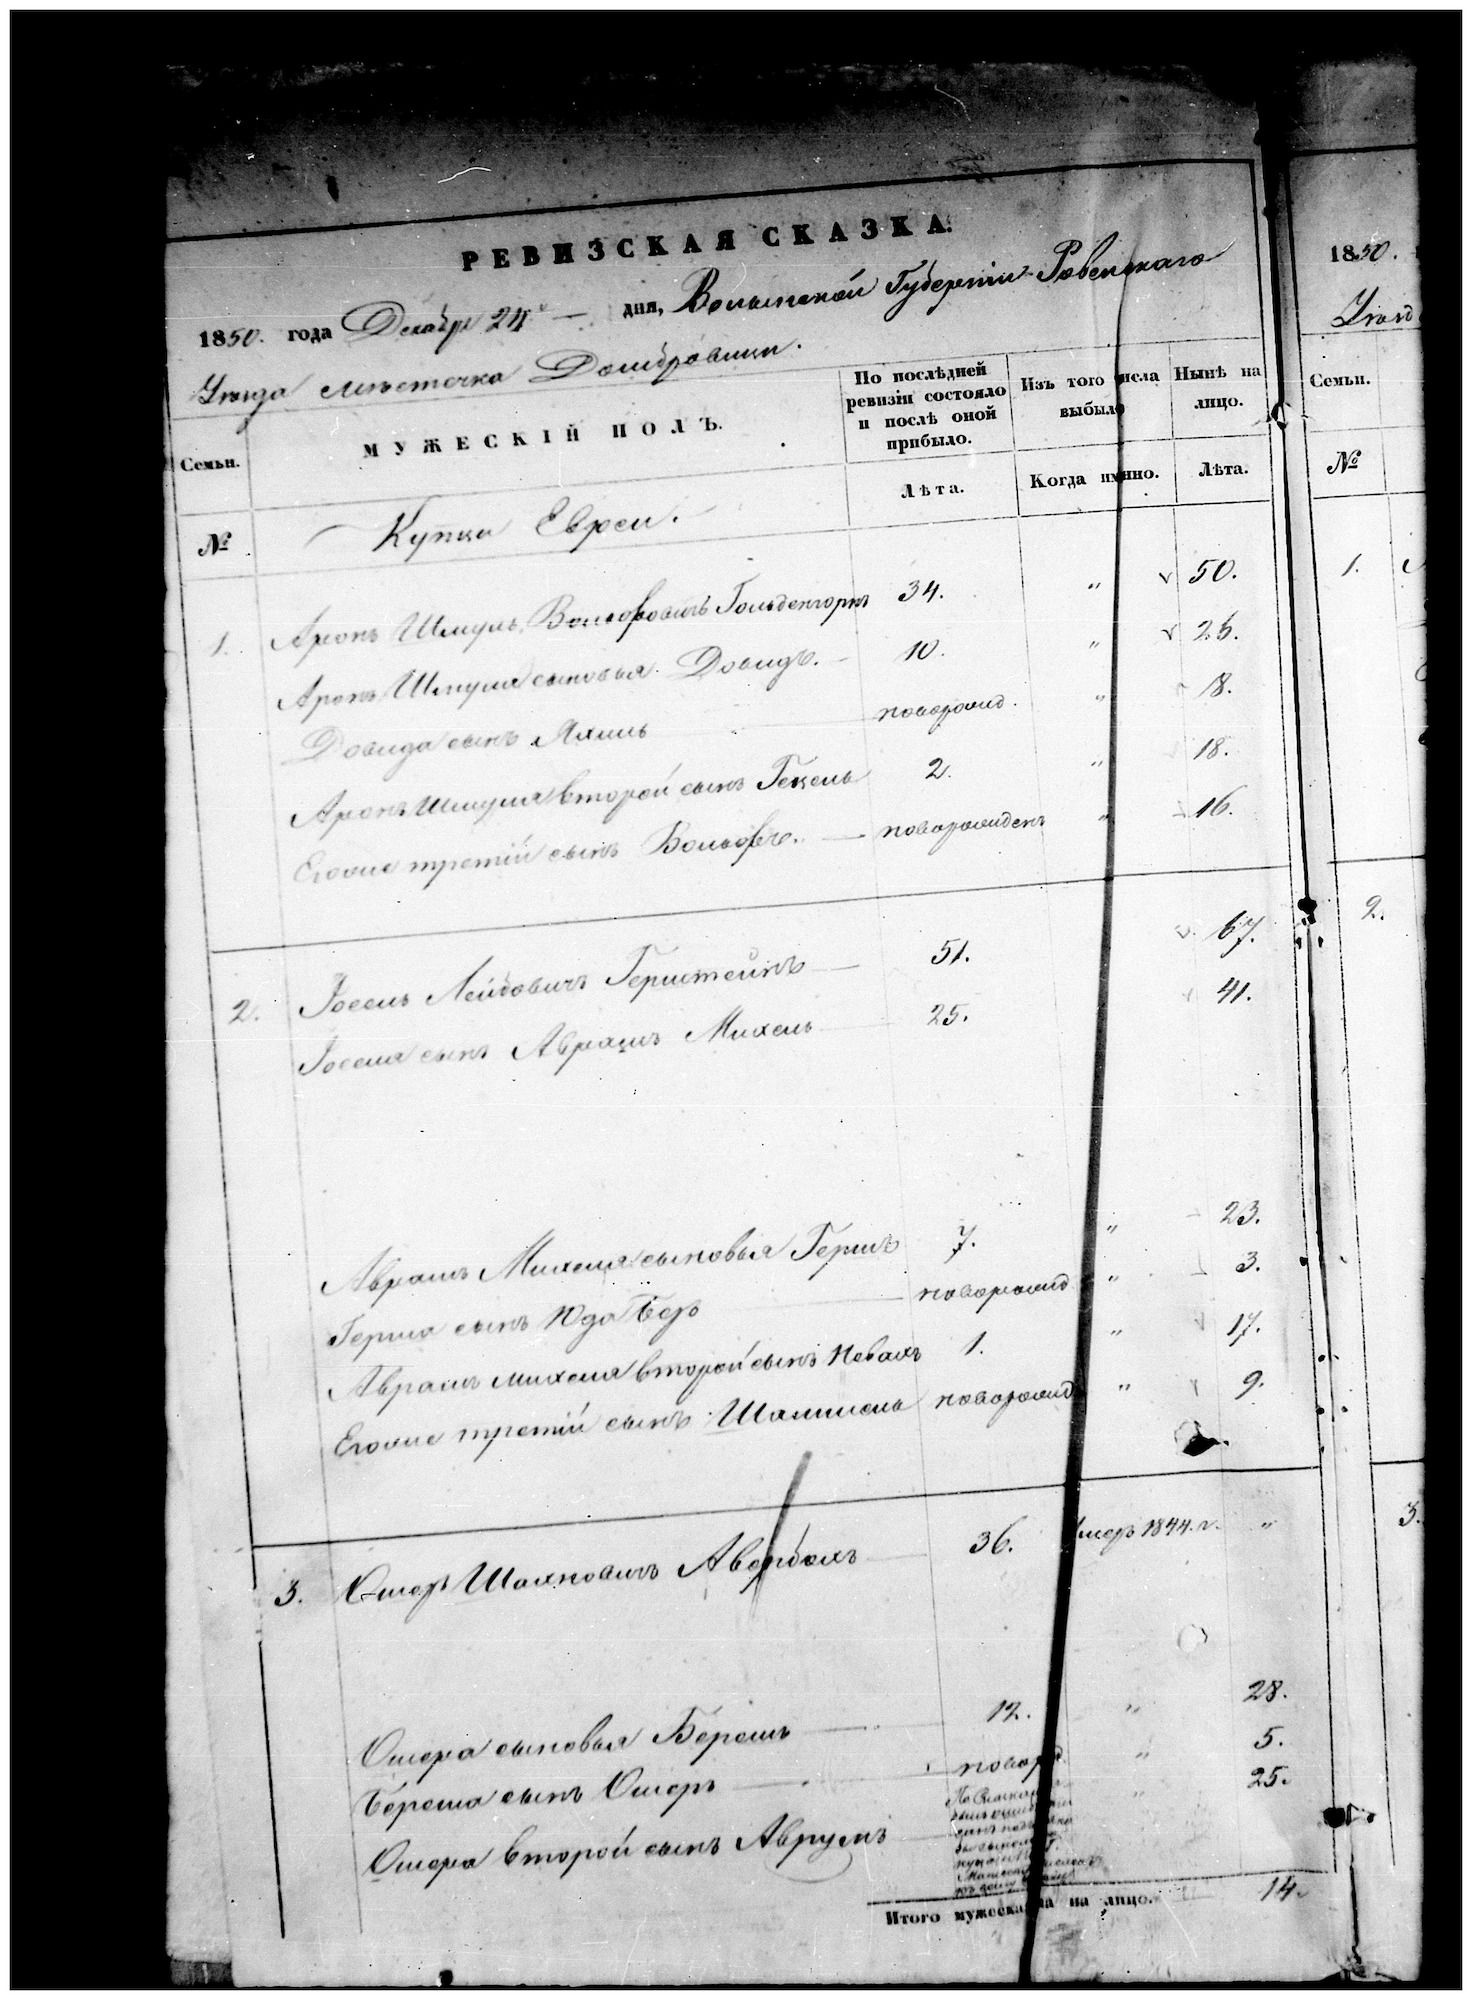 РЕВИЗСКАЯ СКАЗКА.
1850. года Декабря 24 дня, Волынской Губерніи Ровенскаго
Уезда местечка Домбровици.
Семьи.
МУЖЕСКІЙ ПОЛЪ.
По послѣдней ревизіи состояло и послѣ оной прибыло.
Изъ того числа выбыло
Нынѣ на лицо.
№
Лѣта.
Когда именно.
Лѣта.
Купци Евреи.
1. Аронъ Шмуль Вольфовичъ Гольденгорнъ 34. " 50.
Аронъ Шмуля сыновья Довидъ. 10. " 26.
Довида сынъ Яхиль новорожд. " 18.
Аронъ Шмуля второй сынъ Гекель 2. " 18.
Егоже третій сынъ Вольфъ. новорожденъ " 16.
2. Іосель Лейбовичъ Герштейнъ 51. 67.
Іоселя сынъ Аврамъ Михель 25. 41.
Аврамъ Михеля сыновья Гершъ 7. " 23.
Герша сынъ Юда Беръ новорожд " 3.
Аврамъ Михеля второй сынъ Невахъ 1. " 17.
Егоже третій сынъ Шлиомель новорожд " 9.
3. Ошеръ Шахновичъ Авербахъ 36. Умеръ 1844. г. "
Ошера сыновья Берешъ 12. " 28.
Береша сынъ Ошеръ новорожд. " 5.
Ошера второй сынъ Аврумъ " 25.
Итого мужеска на лицо. 14.
1850.
Уезд
Семьи.
№
1.
2.
3.